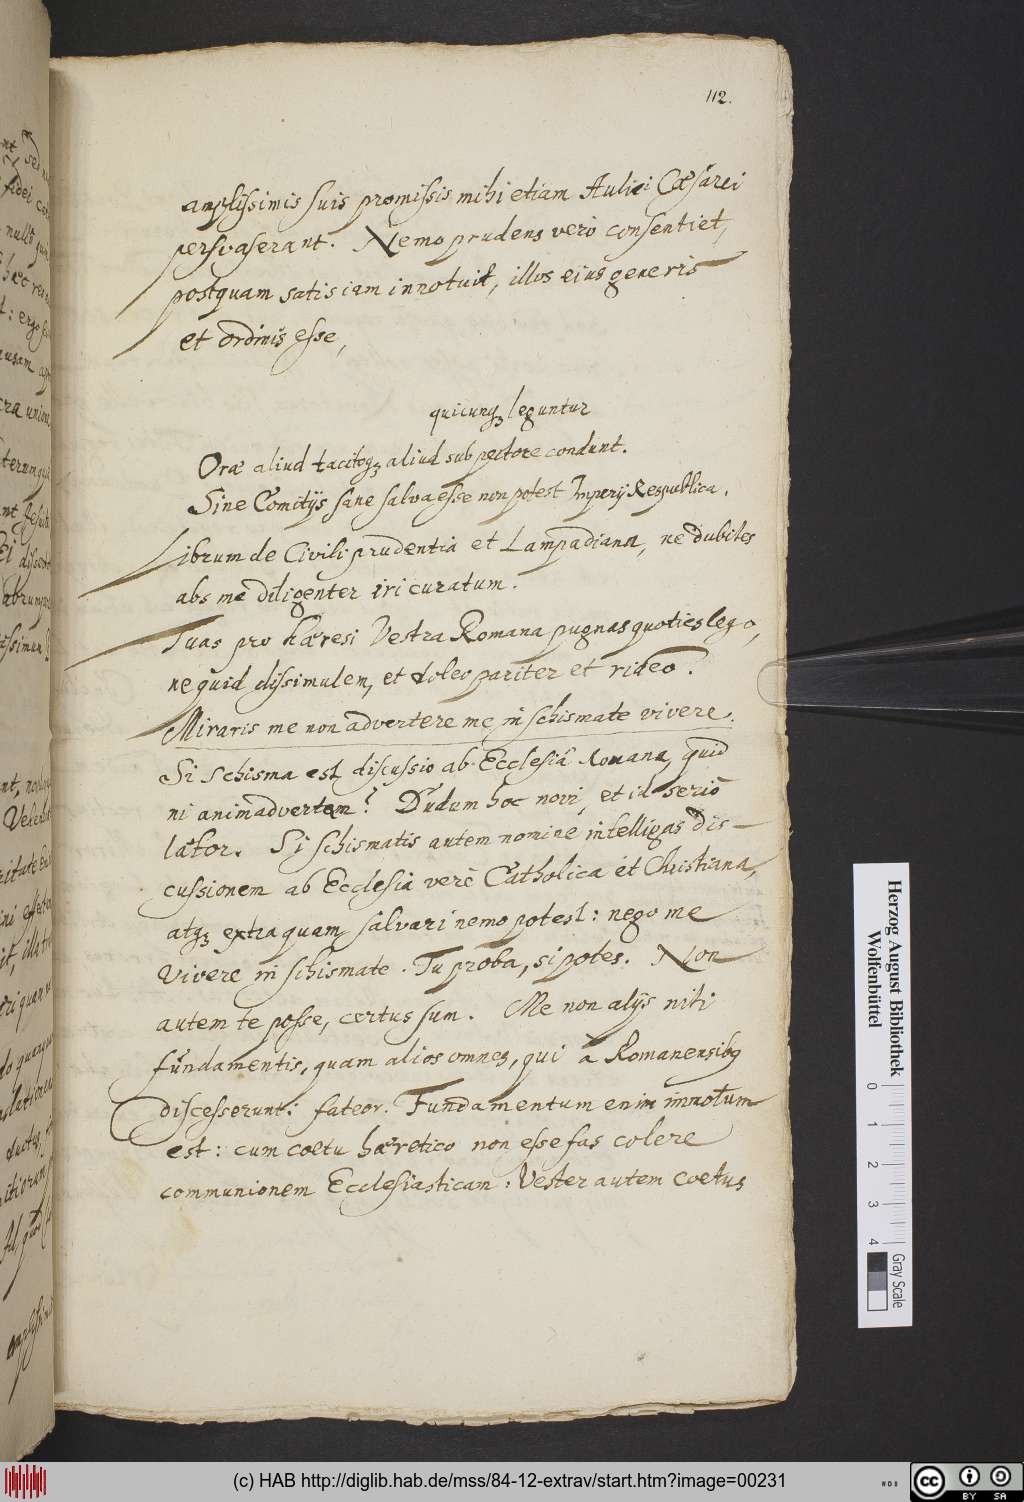 112.
amplissimis suis promissis mihi etiam Aulici Cæsarei
persvaserant. Nemo prudens verò consentiet,
postquam satis iam innotuit, illos eius generis
et ordinis esse,
quicunqꝫ leguntur
Ora aliud tacitoqꝫ aliud sub pectore condunt.
Sine Comitijs sane salva esse non potest Imperij Respublica.
Librum de Civili prudentia et Lampadiana, ne dubites
abs me diligenter iri curatum.
Tuas pro hæresi Vestra Romana pugnas quoties lego,
ne quid dissimulem, et doleo pariter et rideo.
Miraris me non advertere me in schismate vivere.
Si schisma est discussio ab Ecclesiâ Romana, quid
ni animadvertam? Dudum hoc novi, et id seriò
lætor. Si schismatis autem nomine intelligas dis-
cussionem ab Ecclesia verè Catholica et Christiana,
atqꝫ extra quam salvari nemo potest: nego me
vivere in schismate. Tu proba, si potes. Non
autem te posse, certus sum. Me non alijs niti
fundamentis, quam alios omnes, qui à Romanensibꝯ
discesserunt: fateor. Fundamentum enim innotum
est: cum cœtu hæretico non esse fas colere
communionem Ecclesiasticam: Vester autem cœtus
Herzog August Bibliothek
Wolfenbüttel
0 1 2 3 4
Gray Scale
(c) HAB http://diglib.hab.de/mss/84-12-extrav/start.htm?image=00231
cc BY SA